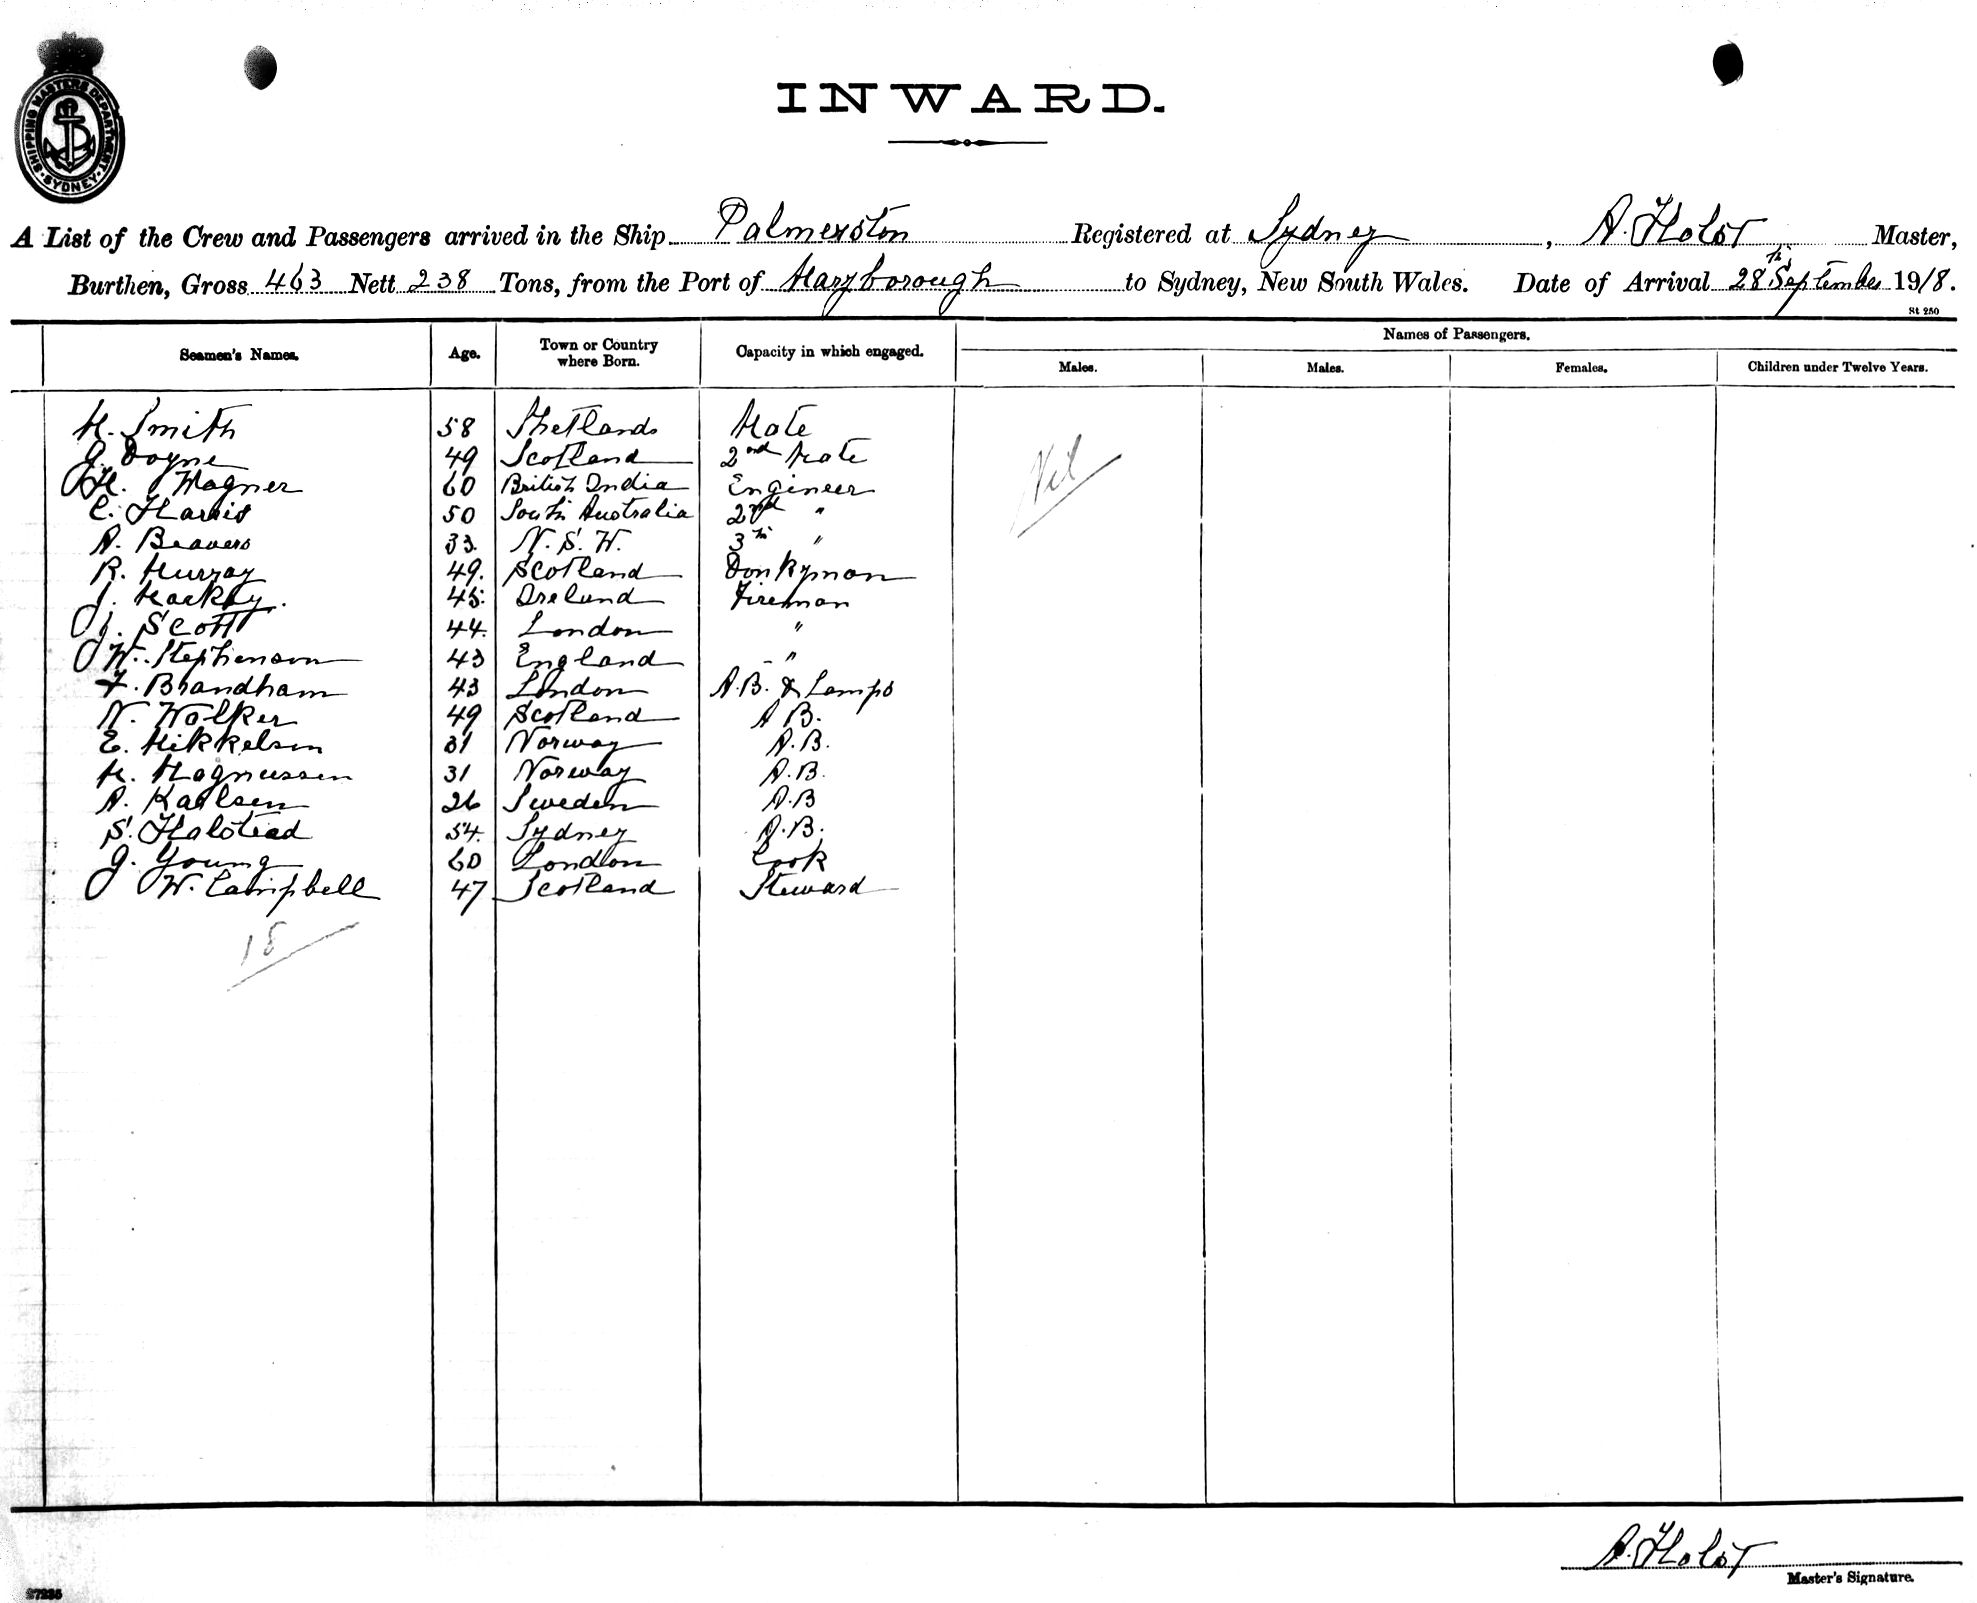 SHIPPING MASTERS DEPARTMENT · SYDNEY ·
INWARD.
A List of the Crew and Passengers arrived in the Ship Palmerston Registered at Sydney, A. Holst Master,
Burthen, Gross 463 Nett 238 Tons, from the Port of Maryborough to Sydney, New South Wales. Date of Arrival 28th September 1918.
St 250
Seamen's Names. Age. Town or Country where Born. Capacity in which engaged. Names of Passengers.
Males. Males. Females. Children under Twelve Years.
M. Smith 58 Shetlands Mate
G. Doyne 49 Scotland 2nd Mate
H. Wagner 60 British India Engineer
C. Harris 50 South Australia 2nd "
A. Beavers 33. N. S. W. 3th "
R. Murray 49. Scotland Donkyman
J. Mackay. 45. Ireland Fireman
J. Scott 44. London "
W. Stephenson 43 England - "
F. Brandham 43 London A.B. & Lamps
N. Walker 49 Scotland A B.
E. Mikkelsen 31 Norway A.B.
M. Magnussen 31 Norway A.B.
A. Karlsen 26 Sweden A.B
S. Halstead 54. Sydney A.B.
G. Young 60 London Cook
W. Campbell 47 Scotland Steward
Nil
18
A. Holst
Master's Signature.